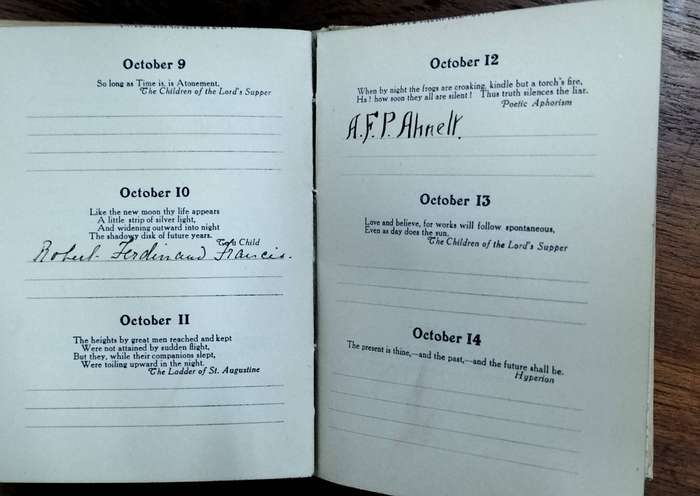 October 9
So long as Time is, is Atonement.
The Children of the Lord's Supper
October 10
Like the new moon thy life appears
A little strip of silver light,
And widening outward into night
The shadowy disk of future years.
To a Child
Robert Ferdinand Francis.
October 11
The heights by great men reached and kept
Were not attained by sudden flight,
But they, while their companions slept,
Were toiling upward in the night.
The Ladder of St. Augustine
October 12
When by night the frogs are croaking, kindle but a torch's fire,
Ha! how soon they all are silent! Thus truth silences the liar.
Poetic Aphorism
A.F.P. Ahnelt.
October 13
Love and believe, for works will follow spontaneous,
Even as day does the sun.
The Children of the Lord's Supper
October 14
The present is thine,—and the past,—and the future shall be.
Hyperion